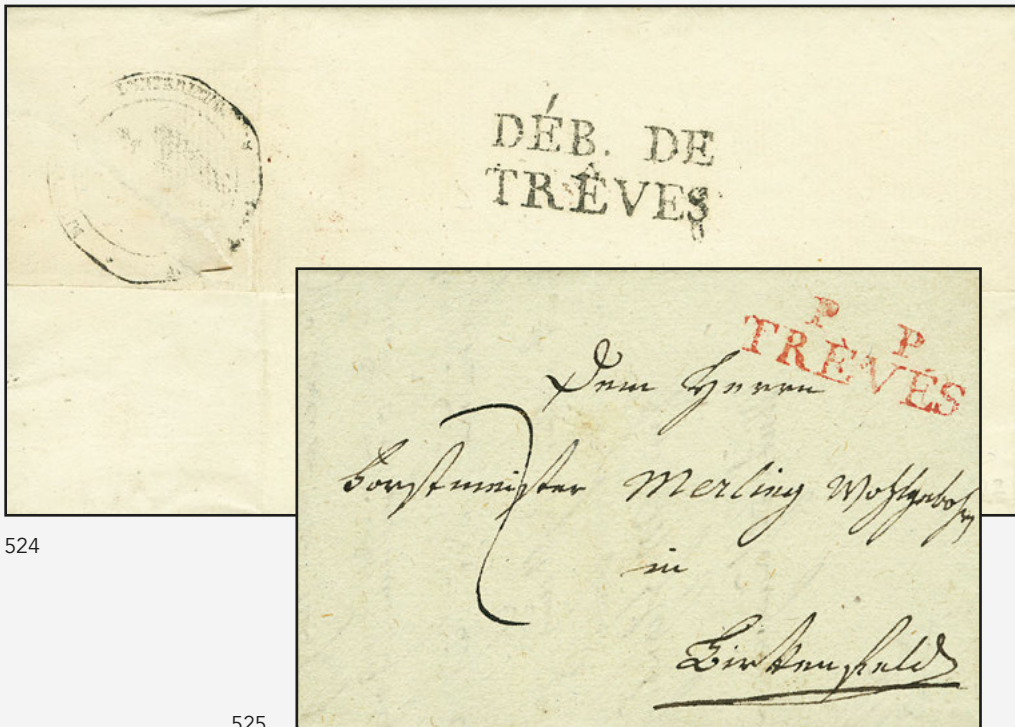 DÉB. DE
TRÊVES
524
P P
TRÈVES
Dem Herrn
Forstmeister Merling Wohlgebohrn
in
Birkenfeld
525